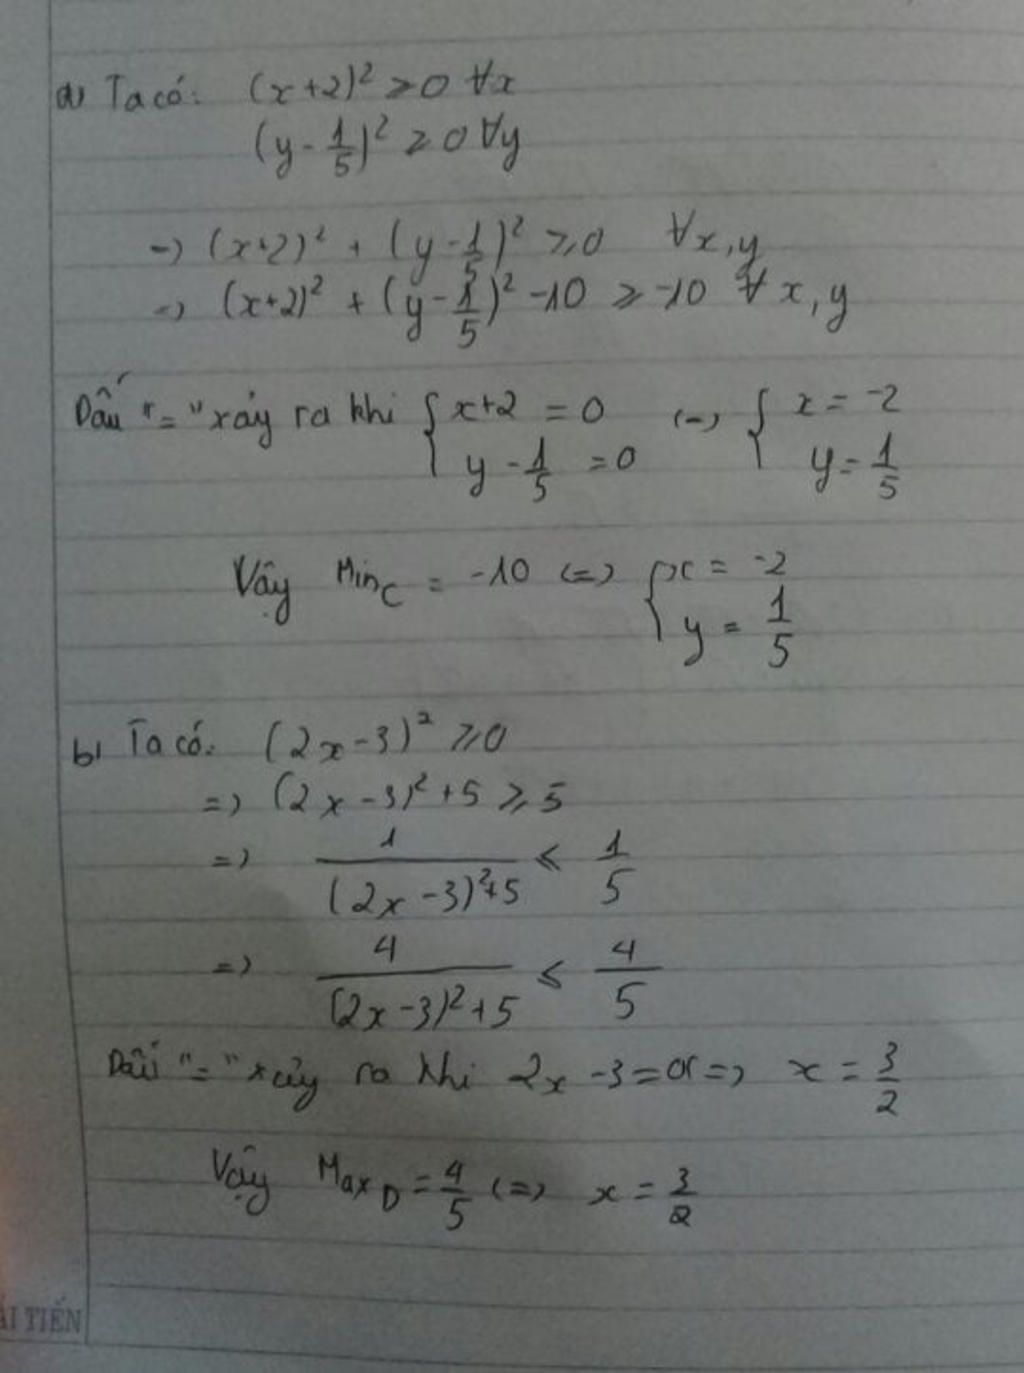 a) Ta có: (x+2)² ≥ 0 ∀x
(y - 1/5)² ≥ 0 ∀y
=> (x+2)² + (y - 1/5)² ≥ 0 ∀x,y
=> (x+2)² + (y - 1/5)² - 10 ≥ -10 ∀x,y
Dấu "=" xảy ra khi { x+2 = 0 <=> { x = -2
y - 1/5 = 0 y = 1/5
Vậy Min_C = -10 <=> { x = -2
y = 1/5
b) Ta có: (2x-3)² ≥ 0
=> (2x-3)² + 5 ≥ 5
=> 1/((2x-3)²+5) ≤ 1/5
=> 4/((2x-3)²+5) ≤ 4/5
Dấu "=" xảy ra khi 2x-3=0 <=> x = 3/2
Vậy Max_D = 4/5 <=> x = 3/2
ẢI TIẾN